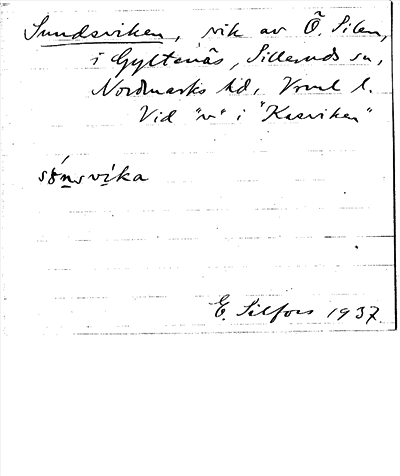 Sundsviken, vik av Ö. Silen,
i Gyltenäs, Silleruds sn,
Nordmarks hd, Vrml l.
Vid "v" i "Kasviken"
sǿnsvíka
E. Silfors 1937.